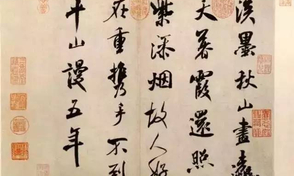 淡墨秋山画遠
天暮霞還照
紫添烟故人好
在重携手不到
平山謾五年